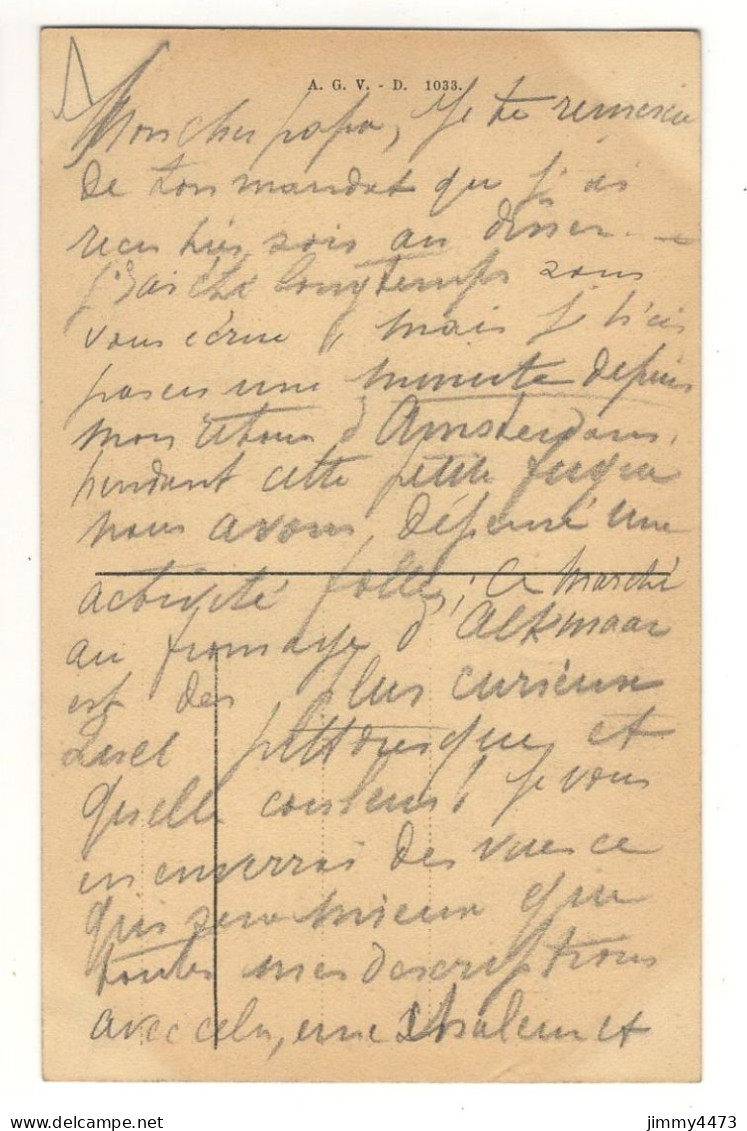 A. G. V. - D. 1033.
Mon cher papa, Je te remercie
de ton mandat que j'ai
recu hier soir au diner. —
J'ai été longtemps sans
vous écrire, mais je n'ai
pas eu une minute depuis
mon retour d'Amsterdam,
pendant cette petite fugue
nous avons dépensé une
activité folle; le marché
au fromage d'Alkmaar
est des plus curieux
Quel pittoresque et
quelle couleur! Je vous
en enverrai des vues ce
qui sera mieux que
toutes mes descriptions
avec cela, une chaleur et
jimmy4473